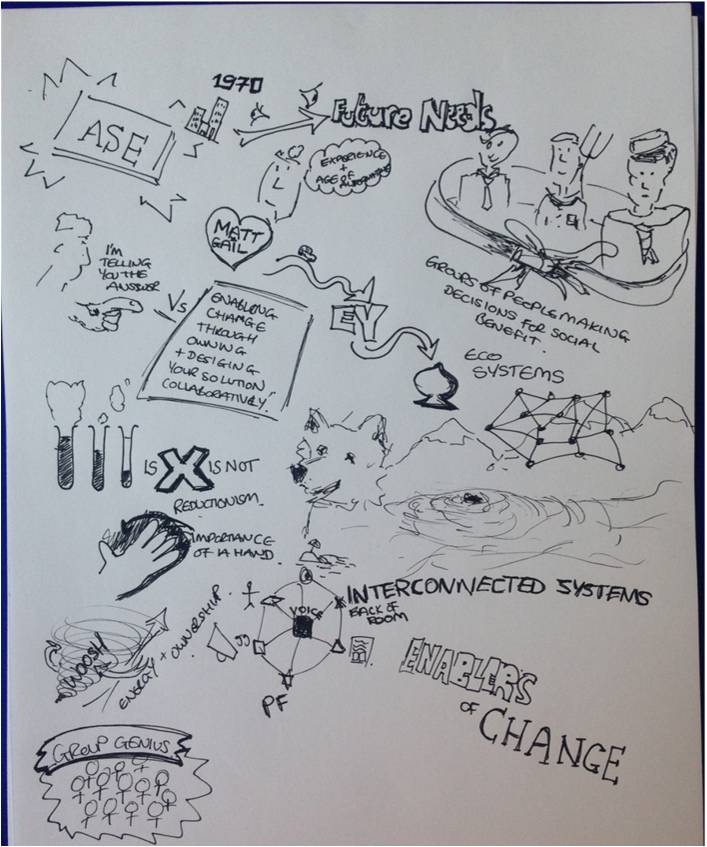 1970
Future Needs
ASE
EXPERIENCE
+
AGE OF
MATT
GAIL
I'M
TELLING
YOU THE
ANSWER
Vs
ENABLING
CHANGE
THROUGH
OWNING
+ DESIGING
YOUR SOLUTION
COLLABORATIVELY."
EY
GROUPS OF PEOPLE MAKING
DECISIONS FOR SOCIAL
BENEFIT.
ECO
SYSTEMS
IS X IS NOT
REDUCTIONISM.
IMPORTANCE
OF 1A HAND.
INTERCONNECTED SYSTEMS
VOICE
BACK OF
ROOM
PF
WOOSH
ENERGY + OWNERSHIP.
ENABLERS
OF
CHANGE
GROUP GENIUS